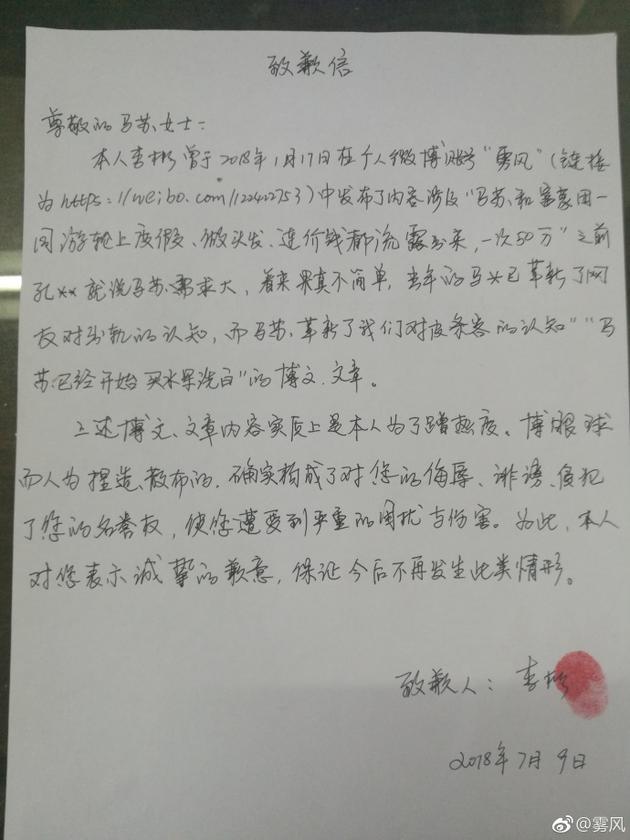 致歉信
尊敬的马苏女士：
本人李彬曾于2018年1月17日在个人微博账号“雾风”（链接
为https://weibo.com/122422753）中发布了内容涉及“马苏和富豪团一
同游轮上度假、做头发、连价钱都流露出来，一次50万”“之前
孔**就说马苏需求大，看来果真不简单，当年的马*已革新了网
友对出轨的认知，而马苏革新了我们对皮条客的认知”“马
苏已经开始买水军洗白”的博文、文章。
上述博文、文章内容实质上是本人为了蹭热度、博眼球
而人为捏造、散布的，确实构成了对您的侮辱、诽谤、侵犯
了您的名誉权，使您遭受到严重的困扰与伤害。为此，本人
对您表示诚挚的歉意，保证今后不再发生此类情形。
致歉人：李彬
2018年7月9日
@雾风